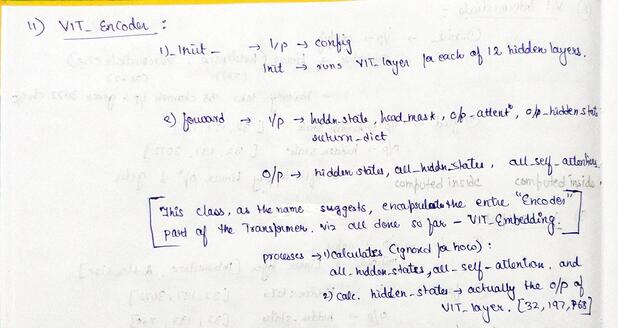 11) VIT_Encoder :
1)_Init_ → I/p → config
Init → runs VIT_layer for each of 12 hidden layers.
2) forward → I/p → hiddn_state, head_mask, o/p_attentⁿ, o/p_hidden state
return_dict
O/p → hidden states, all_hiddn_states, all_self_attentions
computed inside computed inside
[This class, as the name suggests, encapsulates the entire "Encoder"
part of the Transformer. viz all done so far - VIT_Embedding.]
processes → 1) calculates (ignored for now) :
all_hidden_states, all_self_attention, and
2) calc. hidden_states → actually the o/p of
VIT_layer. [32, 197, 768]